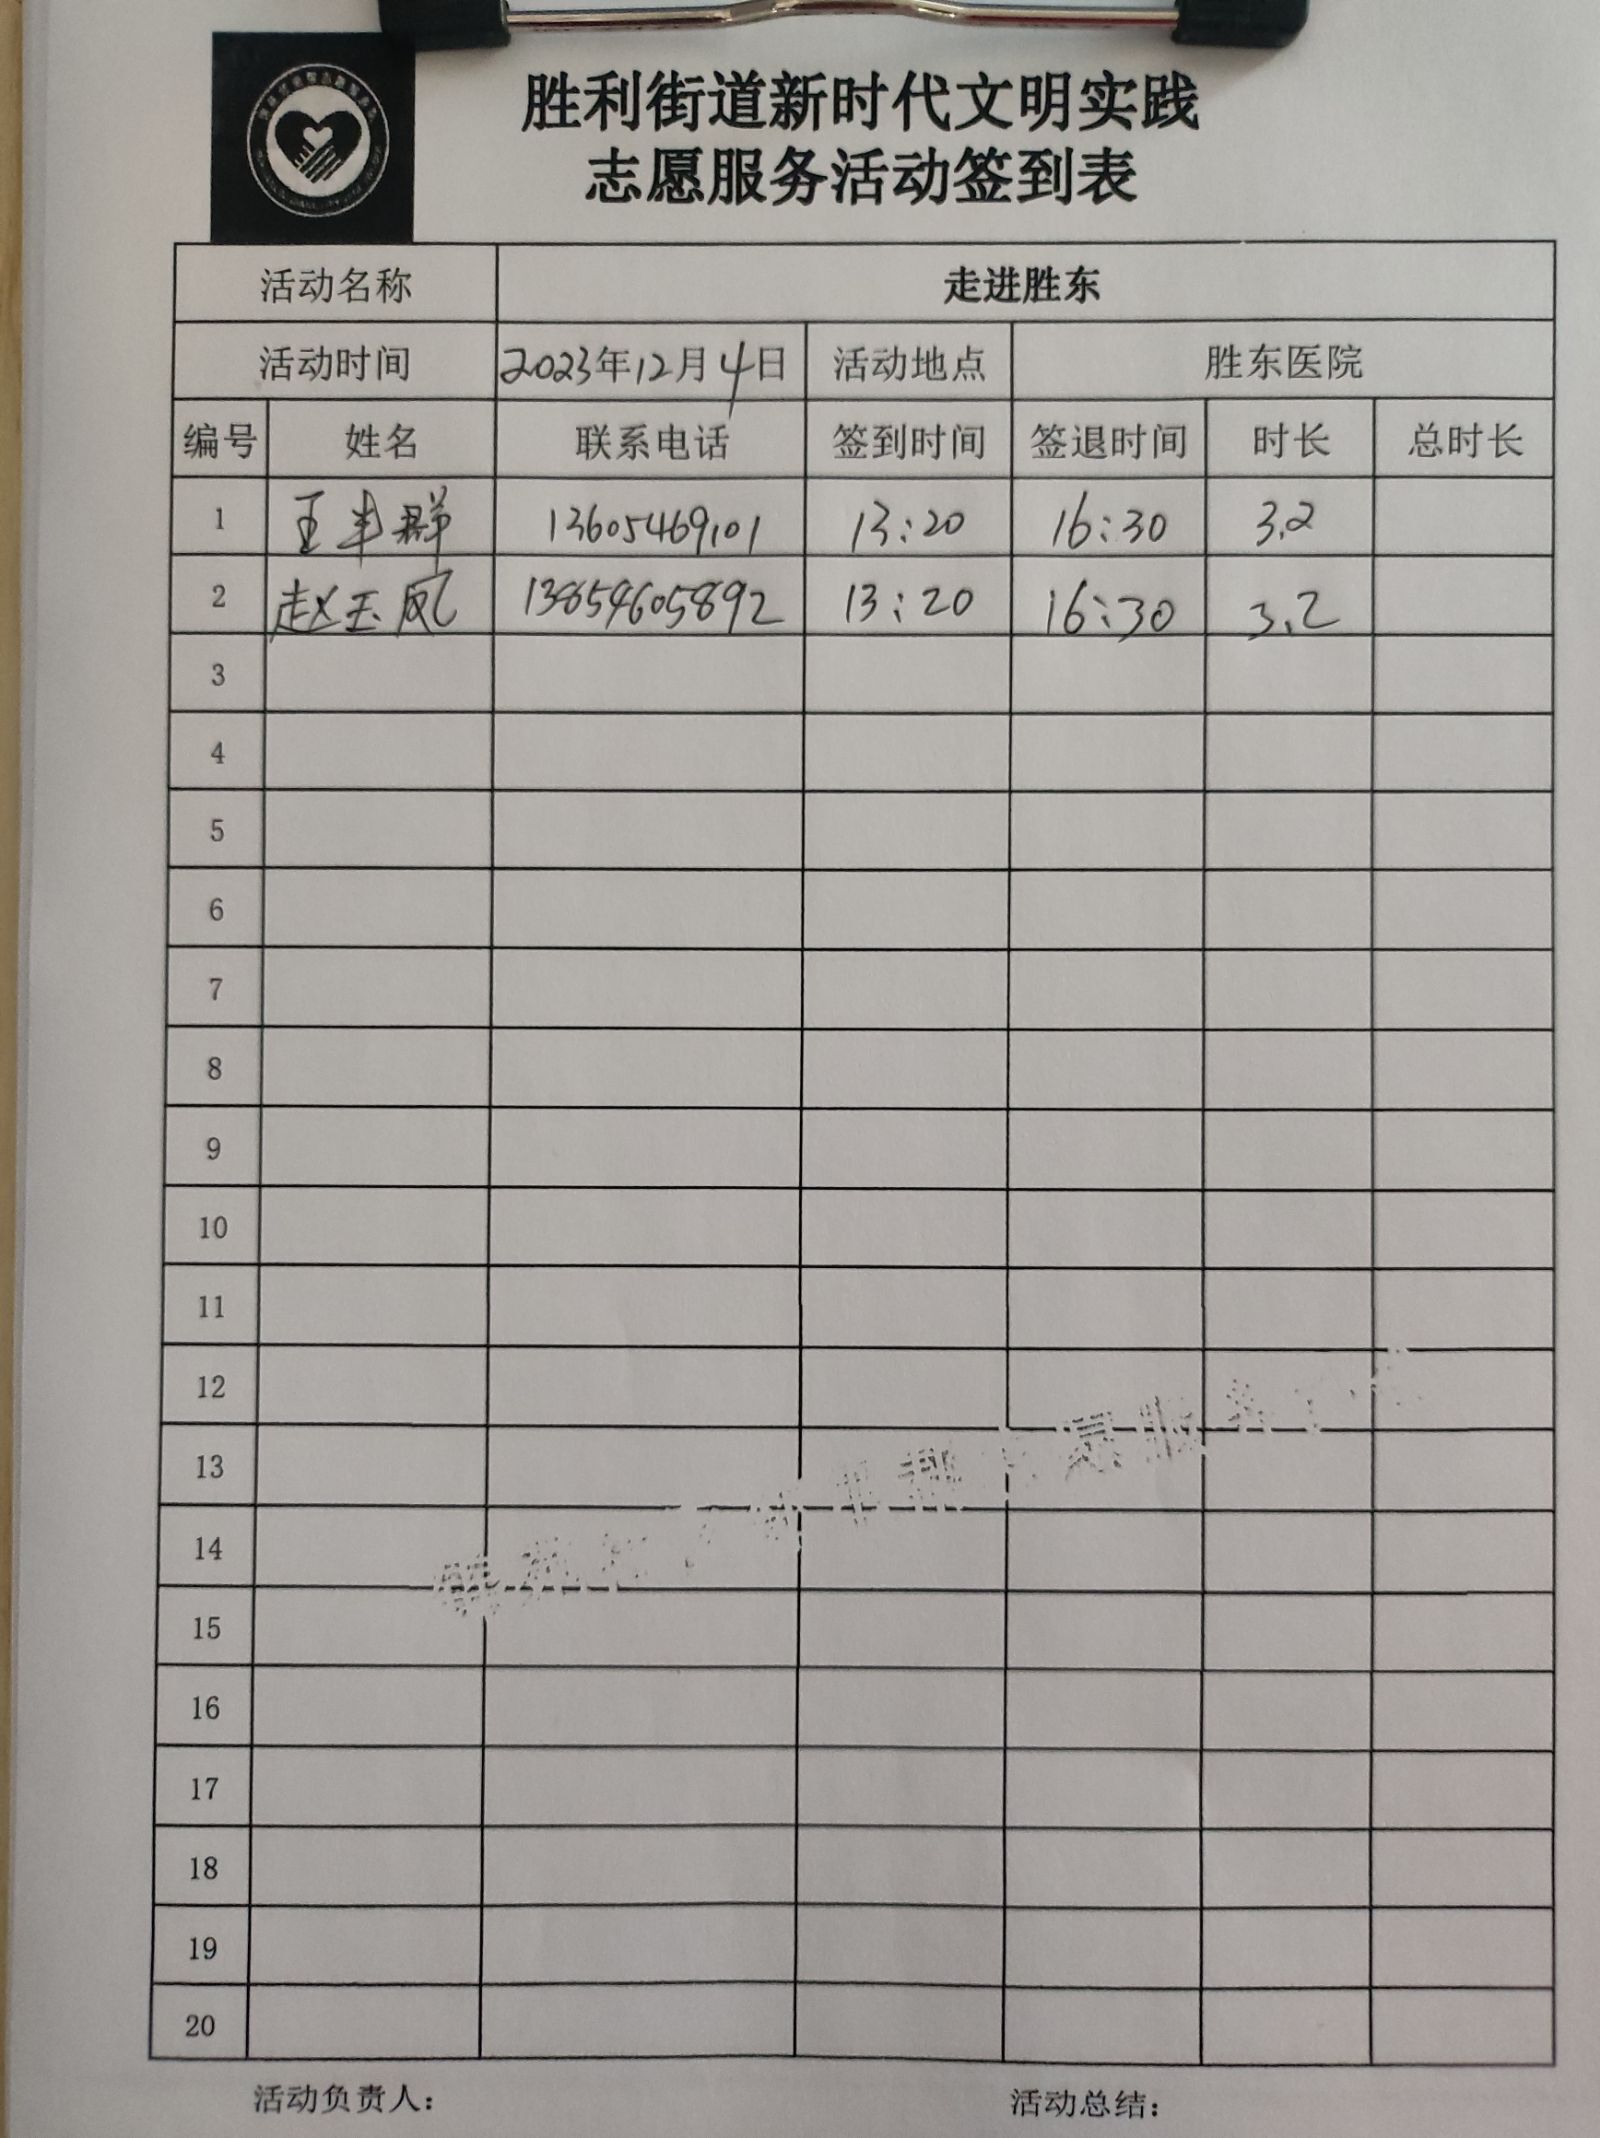 胜利街道新时代文明实践
志愿服务活动签到表
活动名称 走进胜东
活动时间 2023年12月4日 活动地点 胜东医院
编号 姓名 联系电话 签到时间 签退时间 时长 总时长
1 王丰群 13605469101 13:20 16:30 3.2
2 赵玉凤 13854605892 13:20 16:30 3.2
3
4
5
6
7
8
9
10
11
12
13
14
15
16
17
18
19
20
活动负责人： 活动总结：